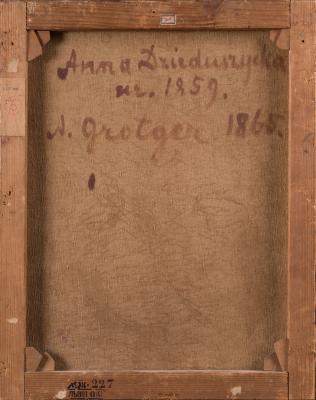 Anna Dzieduszycka
ur. 1859.
A. Grotger 1865.
227